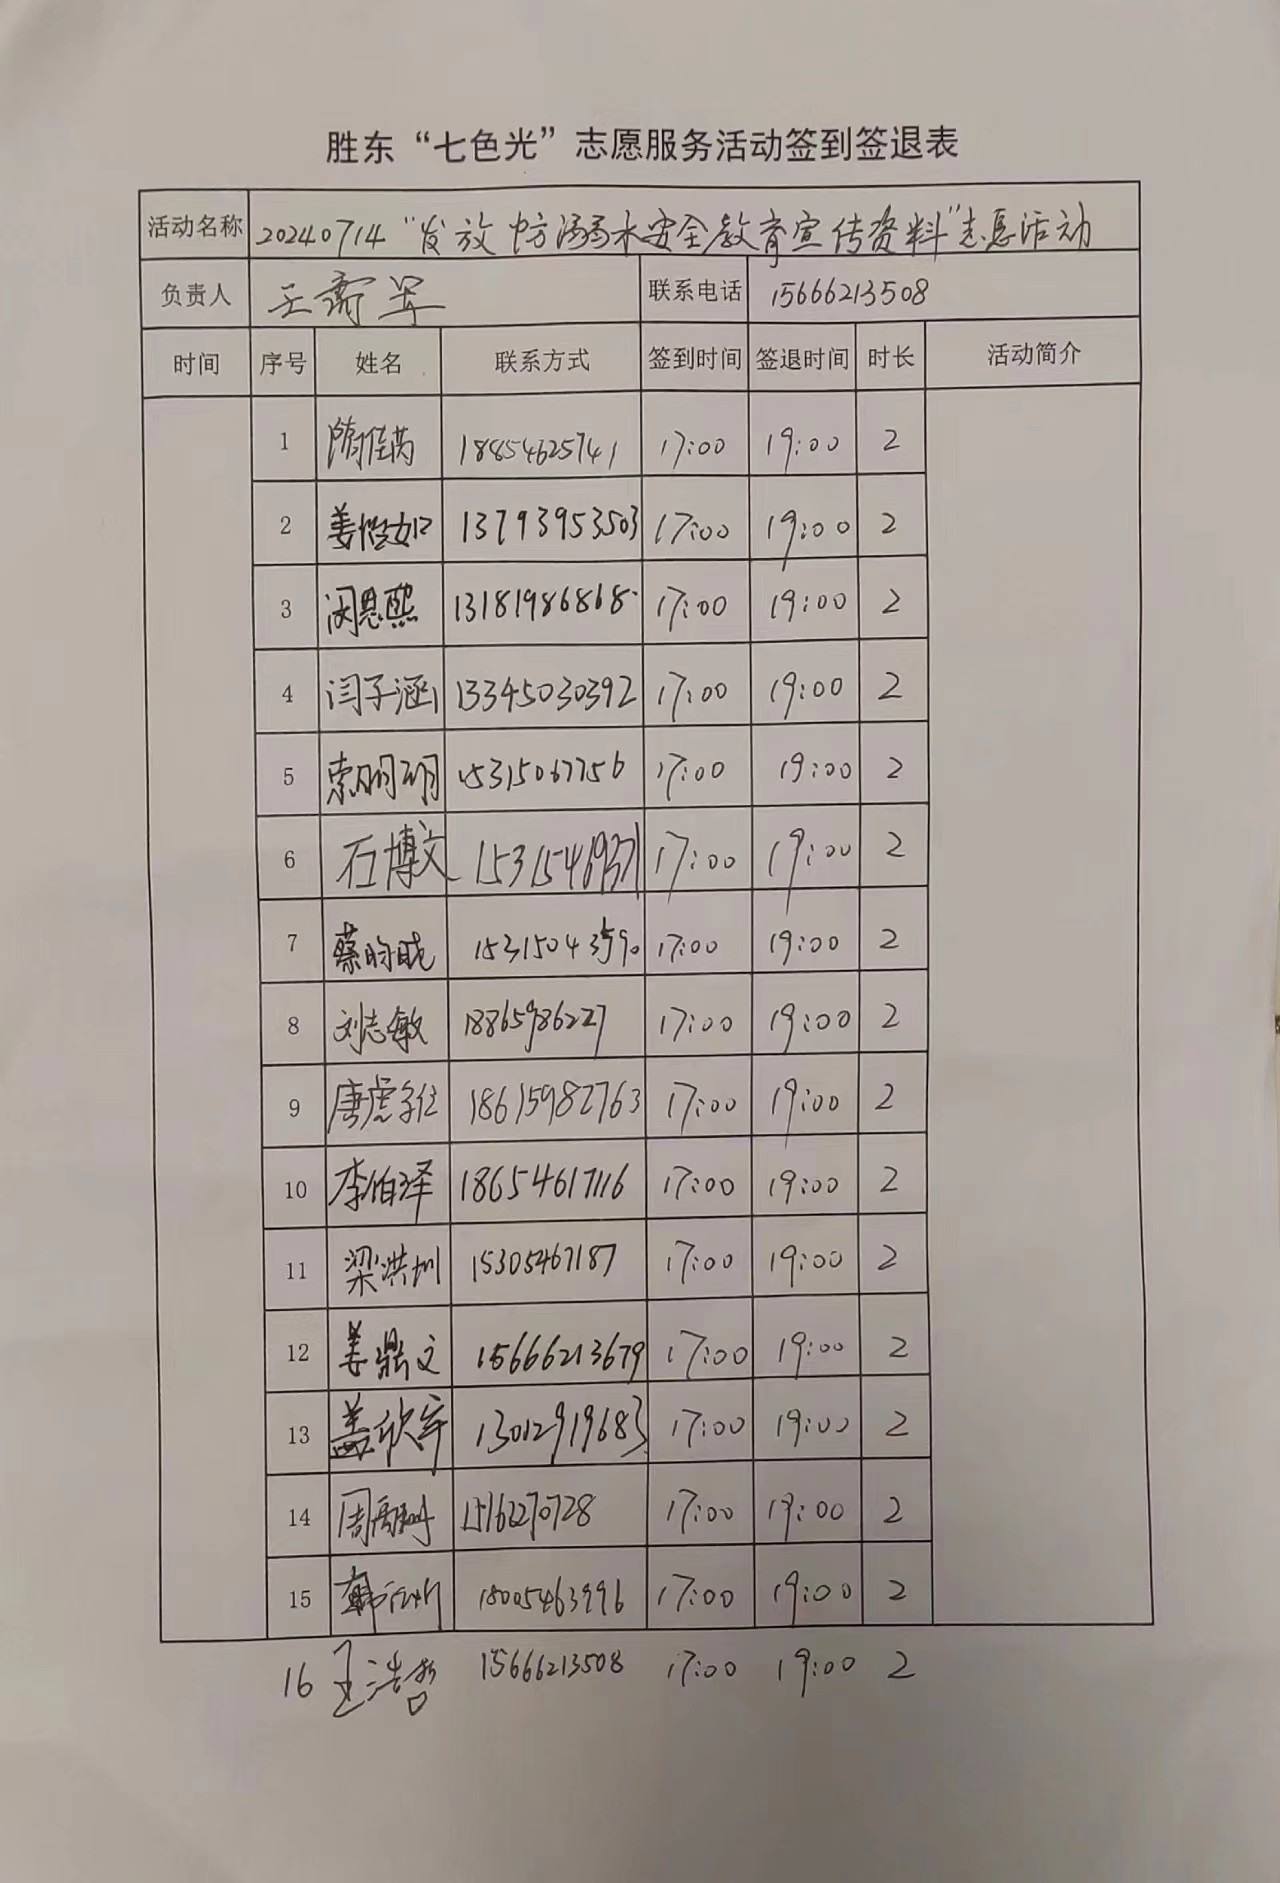 胜东“七色光”志愿服务活动签到签退表
活动名称 20240714“发放防溺水安全教育宣传资料”志愿活动
负责人 王 联系电话 15666213508
时间 序号 姓名 联系方式 签到时间 签退时间 时长 活动简介
1 隋佳芮 18854625741 17:00 19:00 2
2 姜 如 13793953503 17:00 19:00 2
3 闵恩熙 13181986868 17:00 19:00 2
4 闫子涵 13345030392 17:00 19:00 2
5 索明玥 15315067756 17:00 19:00 2
6 石博文 17:00 19:00 2
7 蔡昀晓 15315043590 17:00 19:00 2
8 刘志敏 18865986227 17:00 19:00 2
9 唐虎 18615982763 17:00 19:00 2
10 李伯泽 18654617116 17:00 19:00 2
11 梁洪圳 15305467187 17:00 19:00 2
12 姜鼎文 15666213679 17:00 19:00 2
13 盖欣宇 13012919683 17:00 19:00 2
14 周 17:00 19:00 2
15 韩 18005463996 17:00 19:00 2
16 王浩哲 15666213508 17:00 19:00 2